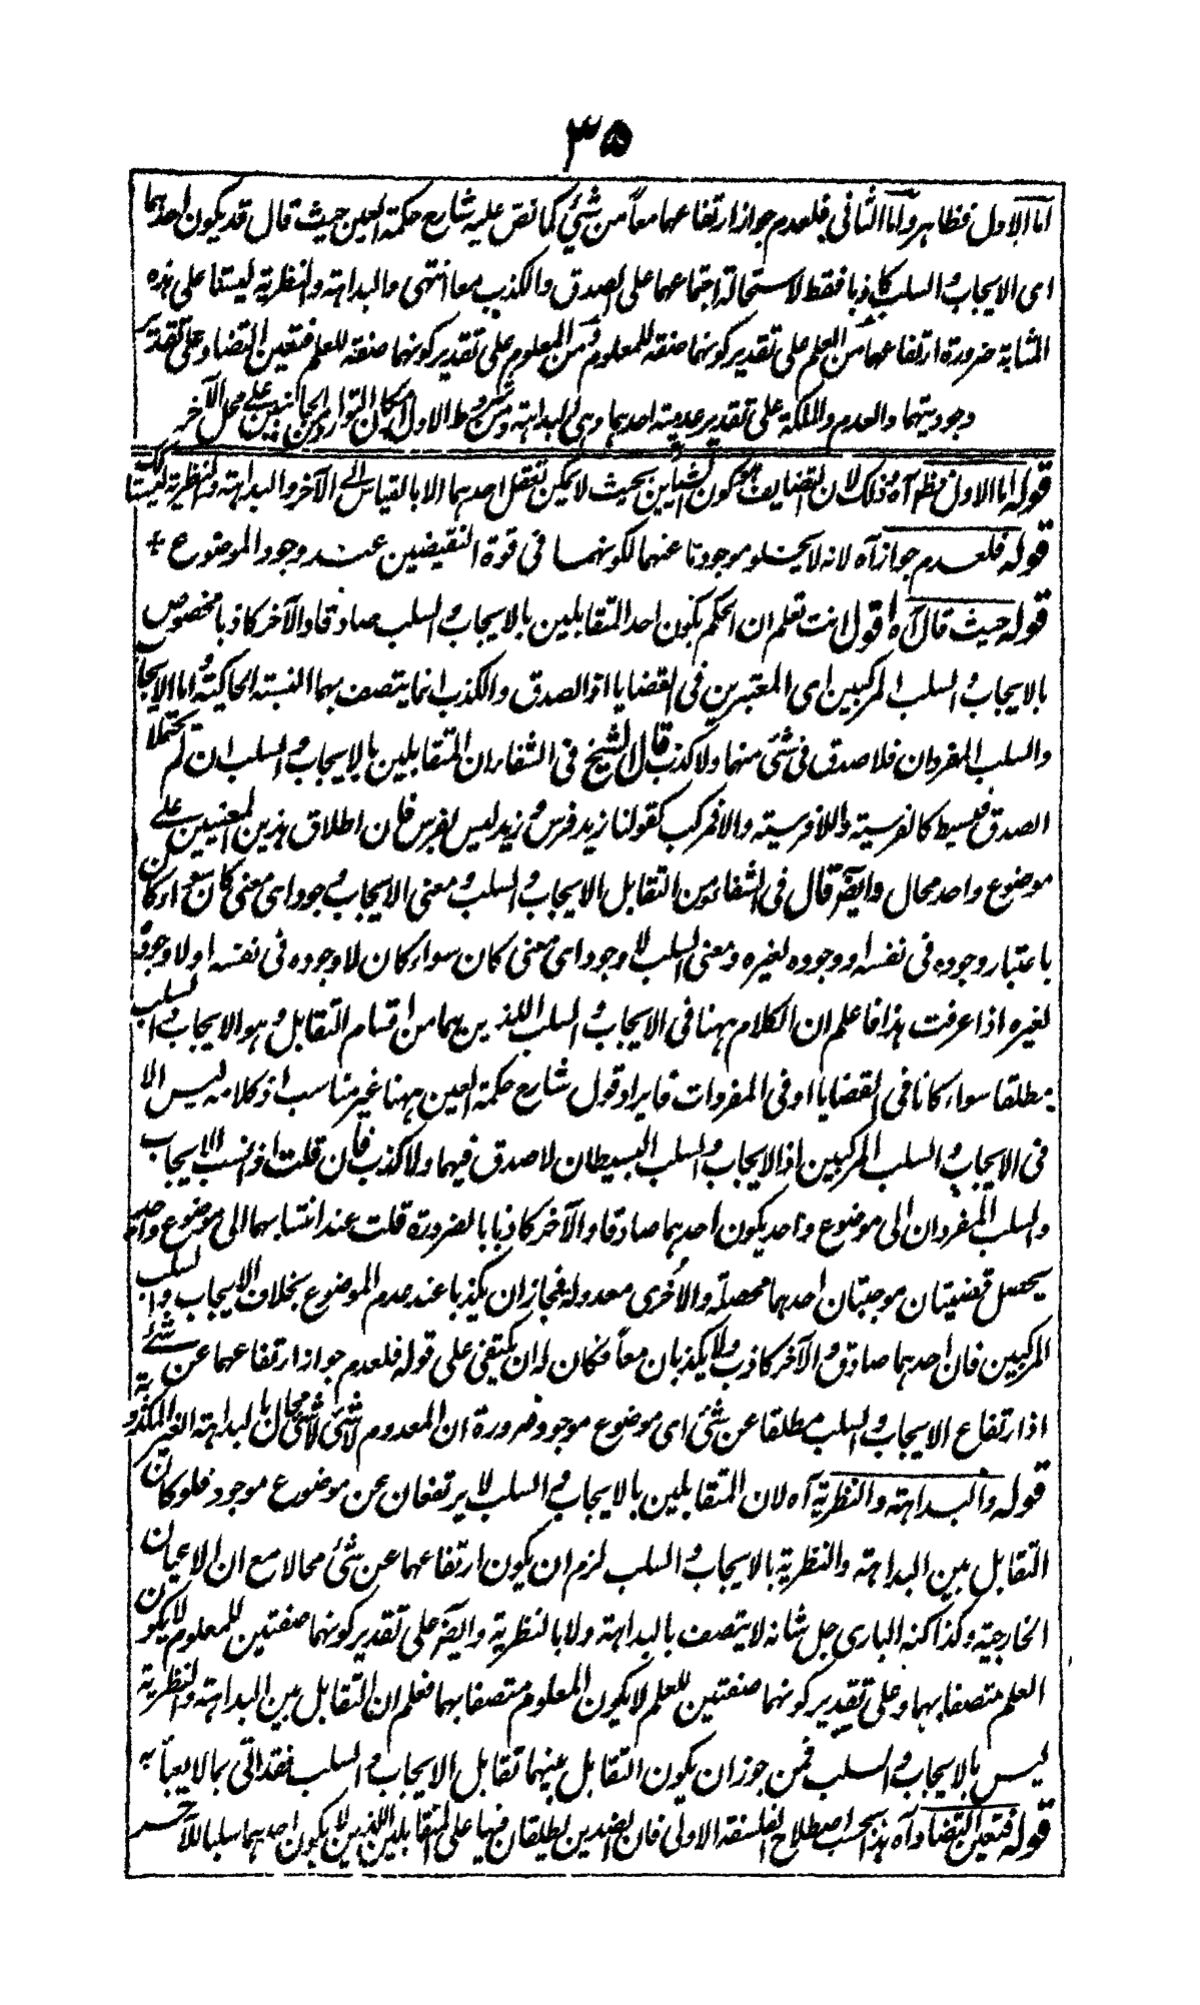 ٣٥
اما الاول فظاهر واما الثانى فلعدم جواز ارتفاعهما معاً من شئ كما نص عليه شارح حكمة العين حيث قال قد يكون احدهما
اى الايجاب والسلب كاذبا فقط لاستحالة اجتماعهما على الصدق والكذب معا انتهى والبداهة والنظرية ليستا على هذه
المثابة ضرورة ارتفاعهما من العلم على تقدير كونهما صفة للمعلوم ومن المعلوم على تقدير كونهما صفة للعلم فتعين التضاد على تقدير
وجوديتهما والعدم والملكة على تقدير عدمية احدهما وهى البداهة ومن شروط الاول امكان التوارد من الجانبين على محل الآخر
قوله اما الاول فظ آه وذلك لان التضايف هو كون الشيئين بحيث لا يمكن تعقل احدهما الا بالقياس الى الآخر والبداهة والنظرية ليستا كك
قوله فلعدم جواز آه لانه لا يخلو موجود ما عنهما لكونهما فى قوة النقيضين عند وجود الموضوع +
قوله حيث قال آه اقول انت تعلم ان الحكم بكون احد المتقابلين بالايجاب والسلب صادقا والآخر كاذبا مخصوص
بالايجاب والسلب المركبين اى المعتبرين فى القضايا اذ الصدق والكذب انما يتصف بهما النسبة الحاكية واما الايجاب
والسلب المفردان فلا صدق فى شئ منهما ولا كذب قال الشيخ فى الشفاء ان المتقابلين بالايجاب والسلب ان لم يحتملا
الصدق فبسيط كالفرسية واللافرسية والا فمركب كقولنا زيد فرس وزيد ليس بفرس فان اطلاق هذين المعنيين على
موضوع واحد محال وايضًا قال فى الشفاء من التقابل الايجاب والسلب ومعنى الايجاب وجود اى معنى كان سواء كان
باعتبار وجوده فى نفسه او وجوده لغيره ومعنى السلب لا وجود اى معنى كان سواء كان لا وجوده فى نفسه او لا وجوده
لغيره اذا عرفت هذا فاعلم ان الكلام ههنا فى الايجاب والسلب اللذين هما من اقسام التقابل وهو الايجاب والسلب
مطلقا سواء كانا فى القضايا او فى المفردات فايراد قول شارح حكمة العين ههنا غير مناسب اذ كلامه ليس الا
فى الايجاب والسلب المركبين اذ الايجاب والسلب البسيطان لا صدق فيهما ولا كذب فان قلت اذا نسب الايجاب
والسلب المفردان الى موضوع واحد يكون احدهما صادقا والآخر كاذبا بالضرورة قلت عند انتسابهما الى موضوع واحد
يحصل قضيتان موجبتان احدهما محصلة والاخرى معدولة فجاز ان يكذبا عند عدم الموضوع بخلاف الايجاب والسلب
المركبين فان احدهما صادق والآخر كاذب ولا يكذبان معاً فكان له ان يكتفى على قوله فلعدم جواز ارتفاعهما عن شئ
اذ ارتفاع الايجاب والسلب مطلقا عن شئ اى موضوع موجود ضرورة ان المعدوم لا شئ لا شئ محال بالبداهة الغير المكذوبة
قوله والبداهة والنظرية آه لان المتقابلين بالايجاب والسلب لا يرتفعان عن موضوع موجود فلو كان
التقابل بين البداهة والنظرية بالايجاب والسلب لزم ان يكون ارتفاعهما عن شئ محالا مع ان الاعيان
الخارجية وكذا كنه البارى جل شانه لا يتصف بالبداهة ولا بالنظرية وايضًا على تقدير كونهما صفتين للمعلوم لا يكون
العلم متصفا بهما وعلى تقدير كونهما صفتين للعلم لا يكون المعلوم متصفا بهما فعلم ان التقابل بين البداهة والنظرية
ليس بالايجاب والسلب فمن جوز ان يكون التقابل بينهما تقابل الايجاب والسلب فقد اتى بما لا يعبأ به
قوله فتعين التضاد آه هذا بحسب اصطلاح الفلسفة الاولى فان الضدين يطلقان فيها على المتقابلين اللذين لا يكون احدهما سلبا للآخر